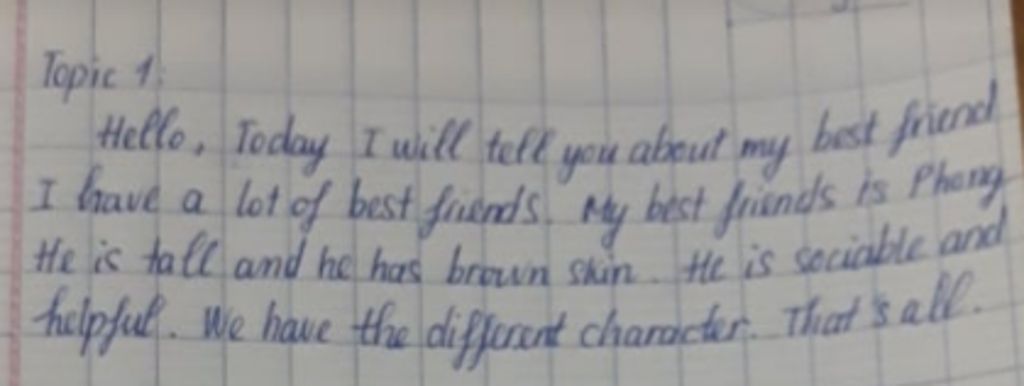 Topic 1:
Hello, Today I will tell you about my best friend
I have a lot of best friends. My best friends is Phong
He is tall and he has brown skin. He is sociable and
helpful. We have the different character. That's all.